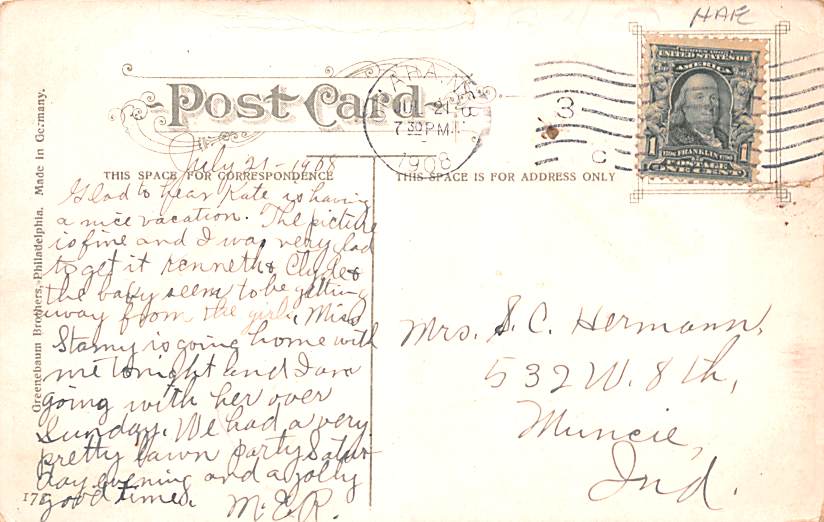 HAE
SERIES 1902
UNITED STATES OF
AMERICA
FRANKLIN
1 1
POSTAGE
ONE CENT
JUL 21
7 30 P.M.
1908
3
C
Post Card
July 21-1908
THIS SPACE FOR CORRESPONDENCE
THIS SPACE IS FOR ADDRESS ONLY
Glad to hear Kate is having
a nice vacation. The picture
is fine and I was very glad
to get it Kenneth & Clyde &
the baby seem to be getting
away from the girls, Miss
Stamy is going home with
me tonight and I am
going with her over
Sunday. We had a very
pretty lawn party Satur-
day evening and a jolly
good time.
M.E.R.
Mrs. S. C. Hermann,
532 W. 8th,
Muncie,
Ind.
Greenebaum Brothers, Philadelphia. Made in Germany.